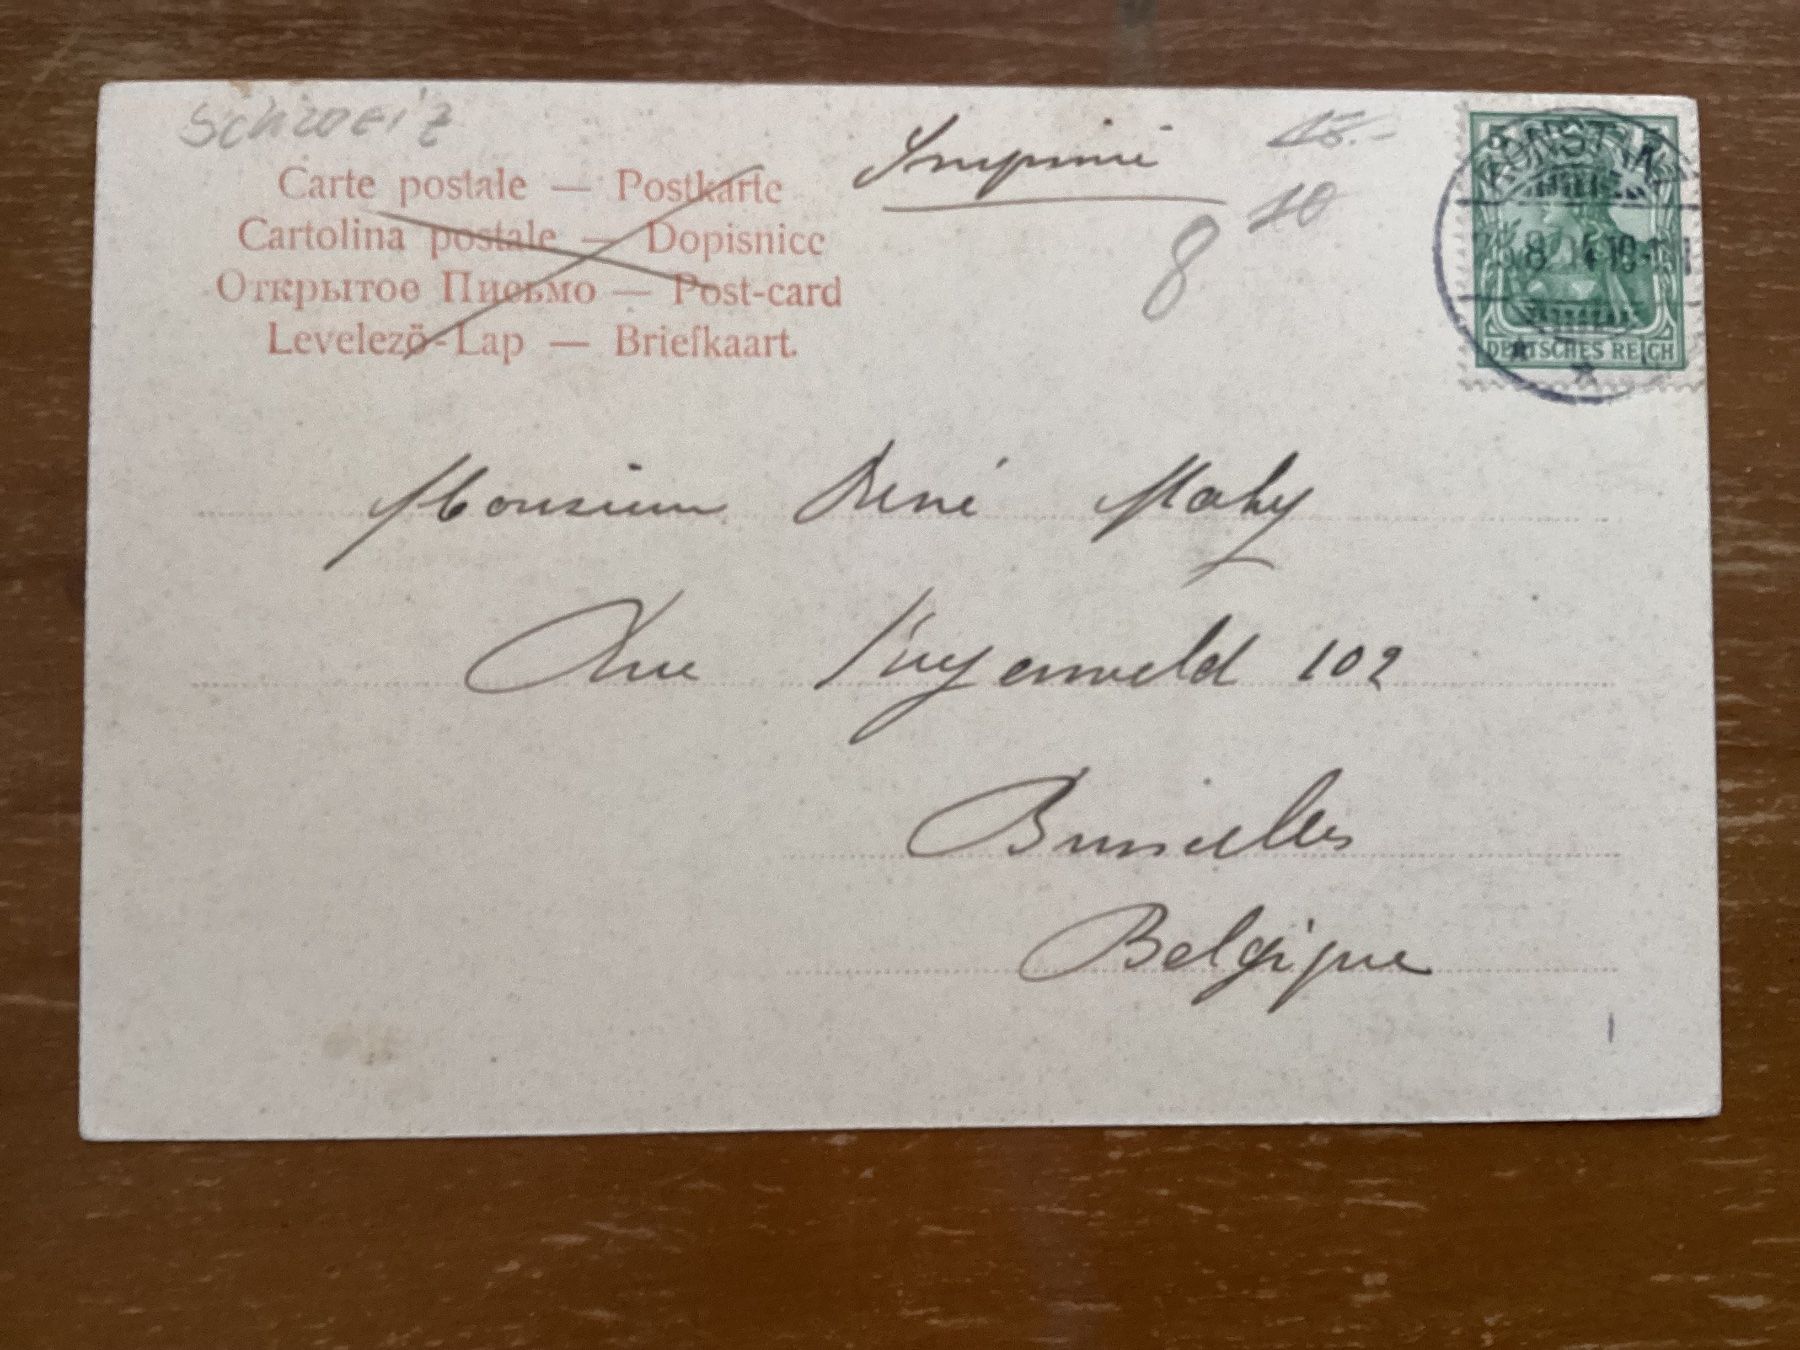 Schweiz
Carte postale — Postkarte
Cartolina postale — Dopisnice
Открытое Письмо — Post-card
Levelező-Lap — Briefkaart.
Imprimé
15.-
10
8
5
KONSTANZ
8
DEUTSCHES REICH
Monsieur René Mahy
Rue 102
Bruxelles
Belgique